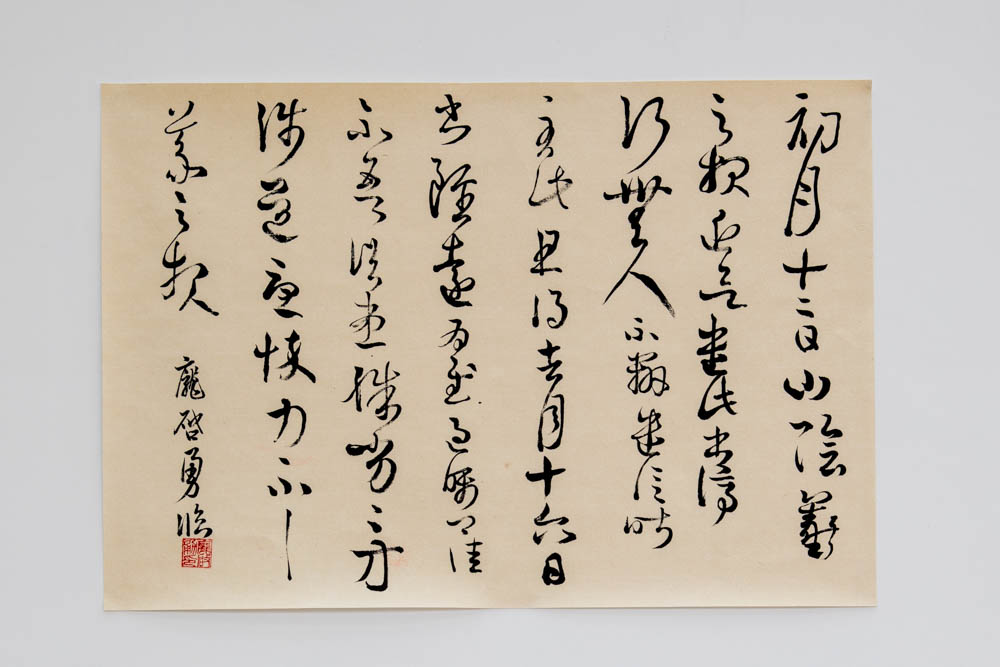 初月十二日山陰羲
之報近欲遣此書停
行無人不辦遣信昨
至此且得去月十六日
書雖遠為慰過囑卿佳
不吾諸患殊劣〻方
涉道憂悴力不
羲之報
龐啓勇臨